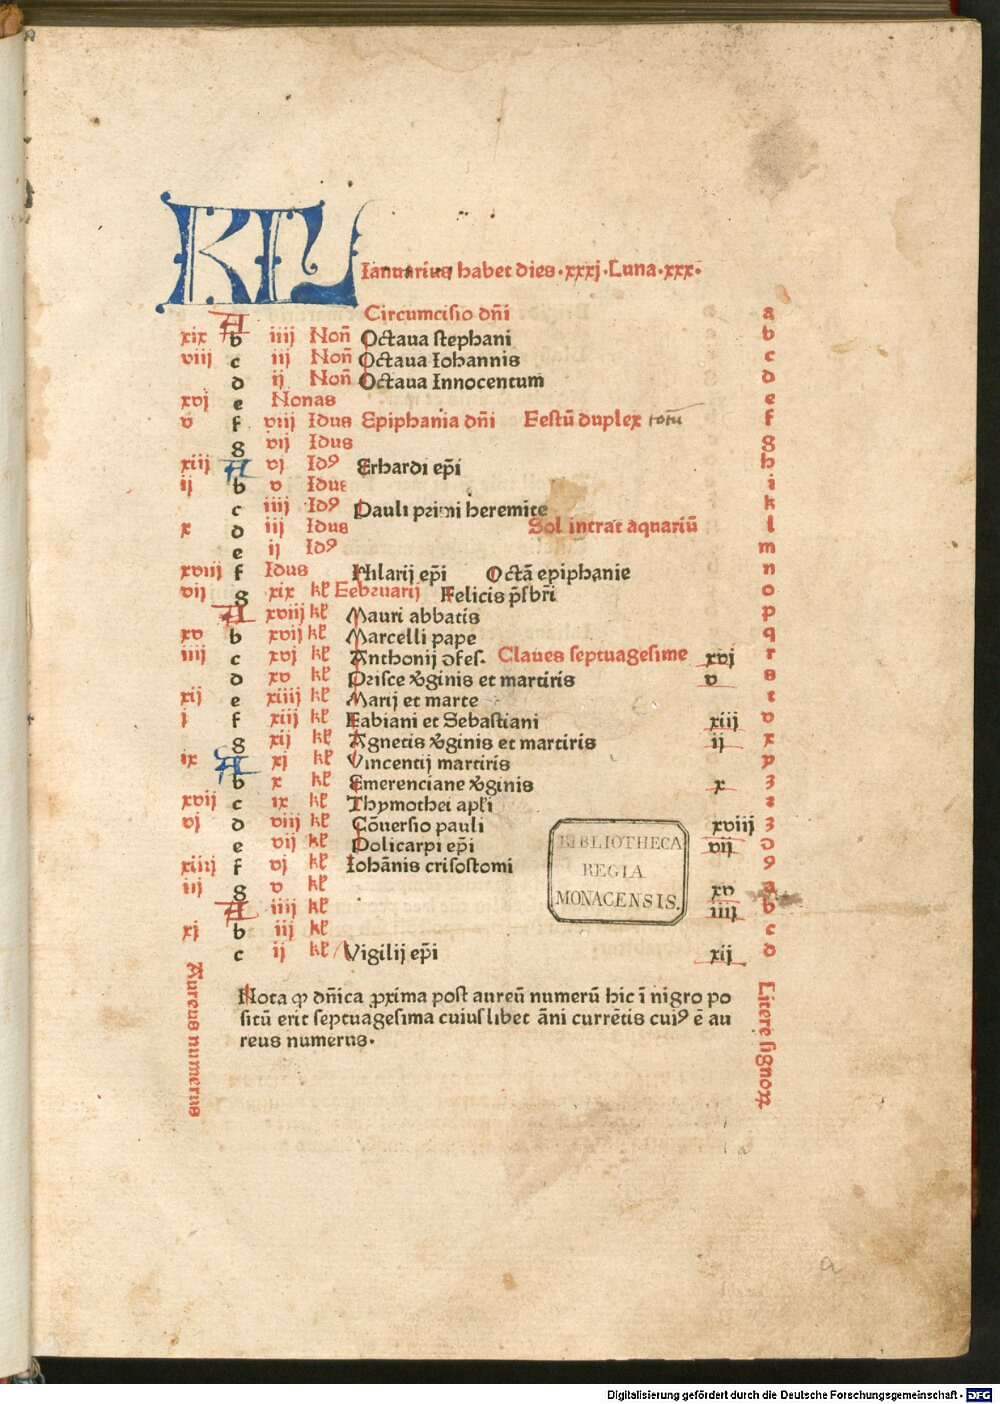 KL Ianuarius habet dies·xxxj·Luna·xxx·
A Circumcisio dn̄i a
xix b iiij Non̄ Octaua stephani b
viij c iij Non̄ Octaua Iohannis c
d ij Non̄ Octaua Innocentum d
xvj e Nonas e
v f viij Idus Epiphania dn̄i Festū duplex totū f
g vij Idus g
xiij A vj Idꝰ Erhardi ep̄i h
ij b v Idus i
c iiij Idꝰ Pauli primi heremite k
x d iij Idus Sol intrat aquariū l
e ij Idꝰ m
xviij f Idus Hilarij ep̄i Octā epiphanie n
vij g xix kł Februarij Felicis p̄sbr̄i o
A xviij kł Mauri abbatis p
xv b xvij kł Marcelli pape q
iiij c xvj kł Anthonij ꝯfes. Claues septuagesime xvj r
d xv kł Prisce v̾ginis et martiris v s
xij e xiiij kł Marij et marte t
j f xiij kł Fabiani et Sebastiani xiij v
g xij kł Agnetis v̾ginis et martiris ij x
ix A xj kł Vincentij martiris y
b x kł Emerenciane v̾ginis x z
xvij c ix kł Thymothei apl̄i ꝛ
vj d viij kł Cōuersio pauli xviij ꝫ
e vij kł Policarpi ep̄i vij ꝯ
xiiij f vj kł Iohānis crisostomi ꝰ
iij g v kł xv a
A iiij kł iiij b
xj b iij kł c
c ij kł Vigilij ep̄i xij d
Nota ꝙ dn̄ica ꝓxima post aureū numerū hic ī nigro po
sitū erit septuagesima cuiuslibet āni currētis cuiꝰ ē au
reus numerus.
Aureus numerus
Litere signoꝝ
BIBLIOTHECA
REGIA
MONACENSIS.
a
a
Digitalisierung gefördert durch die Deutsche Forschungsgemeinschaft - DFG